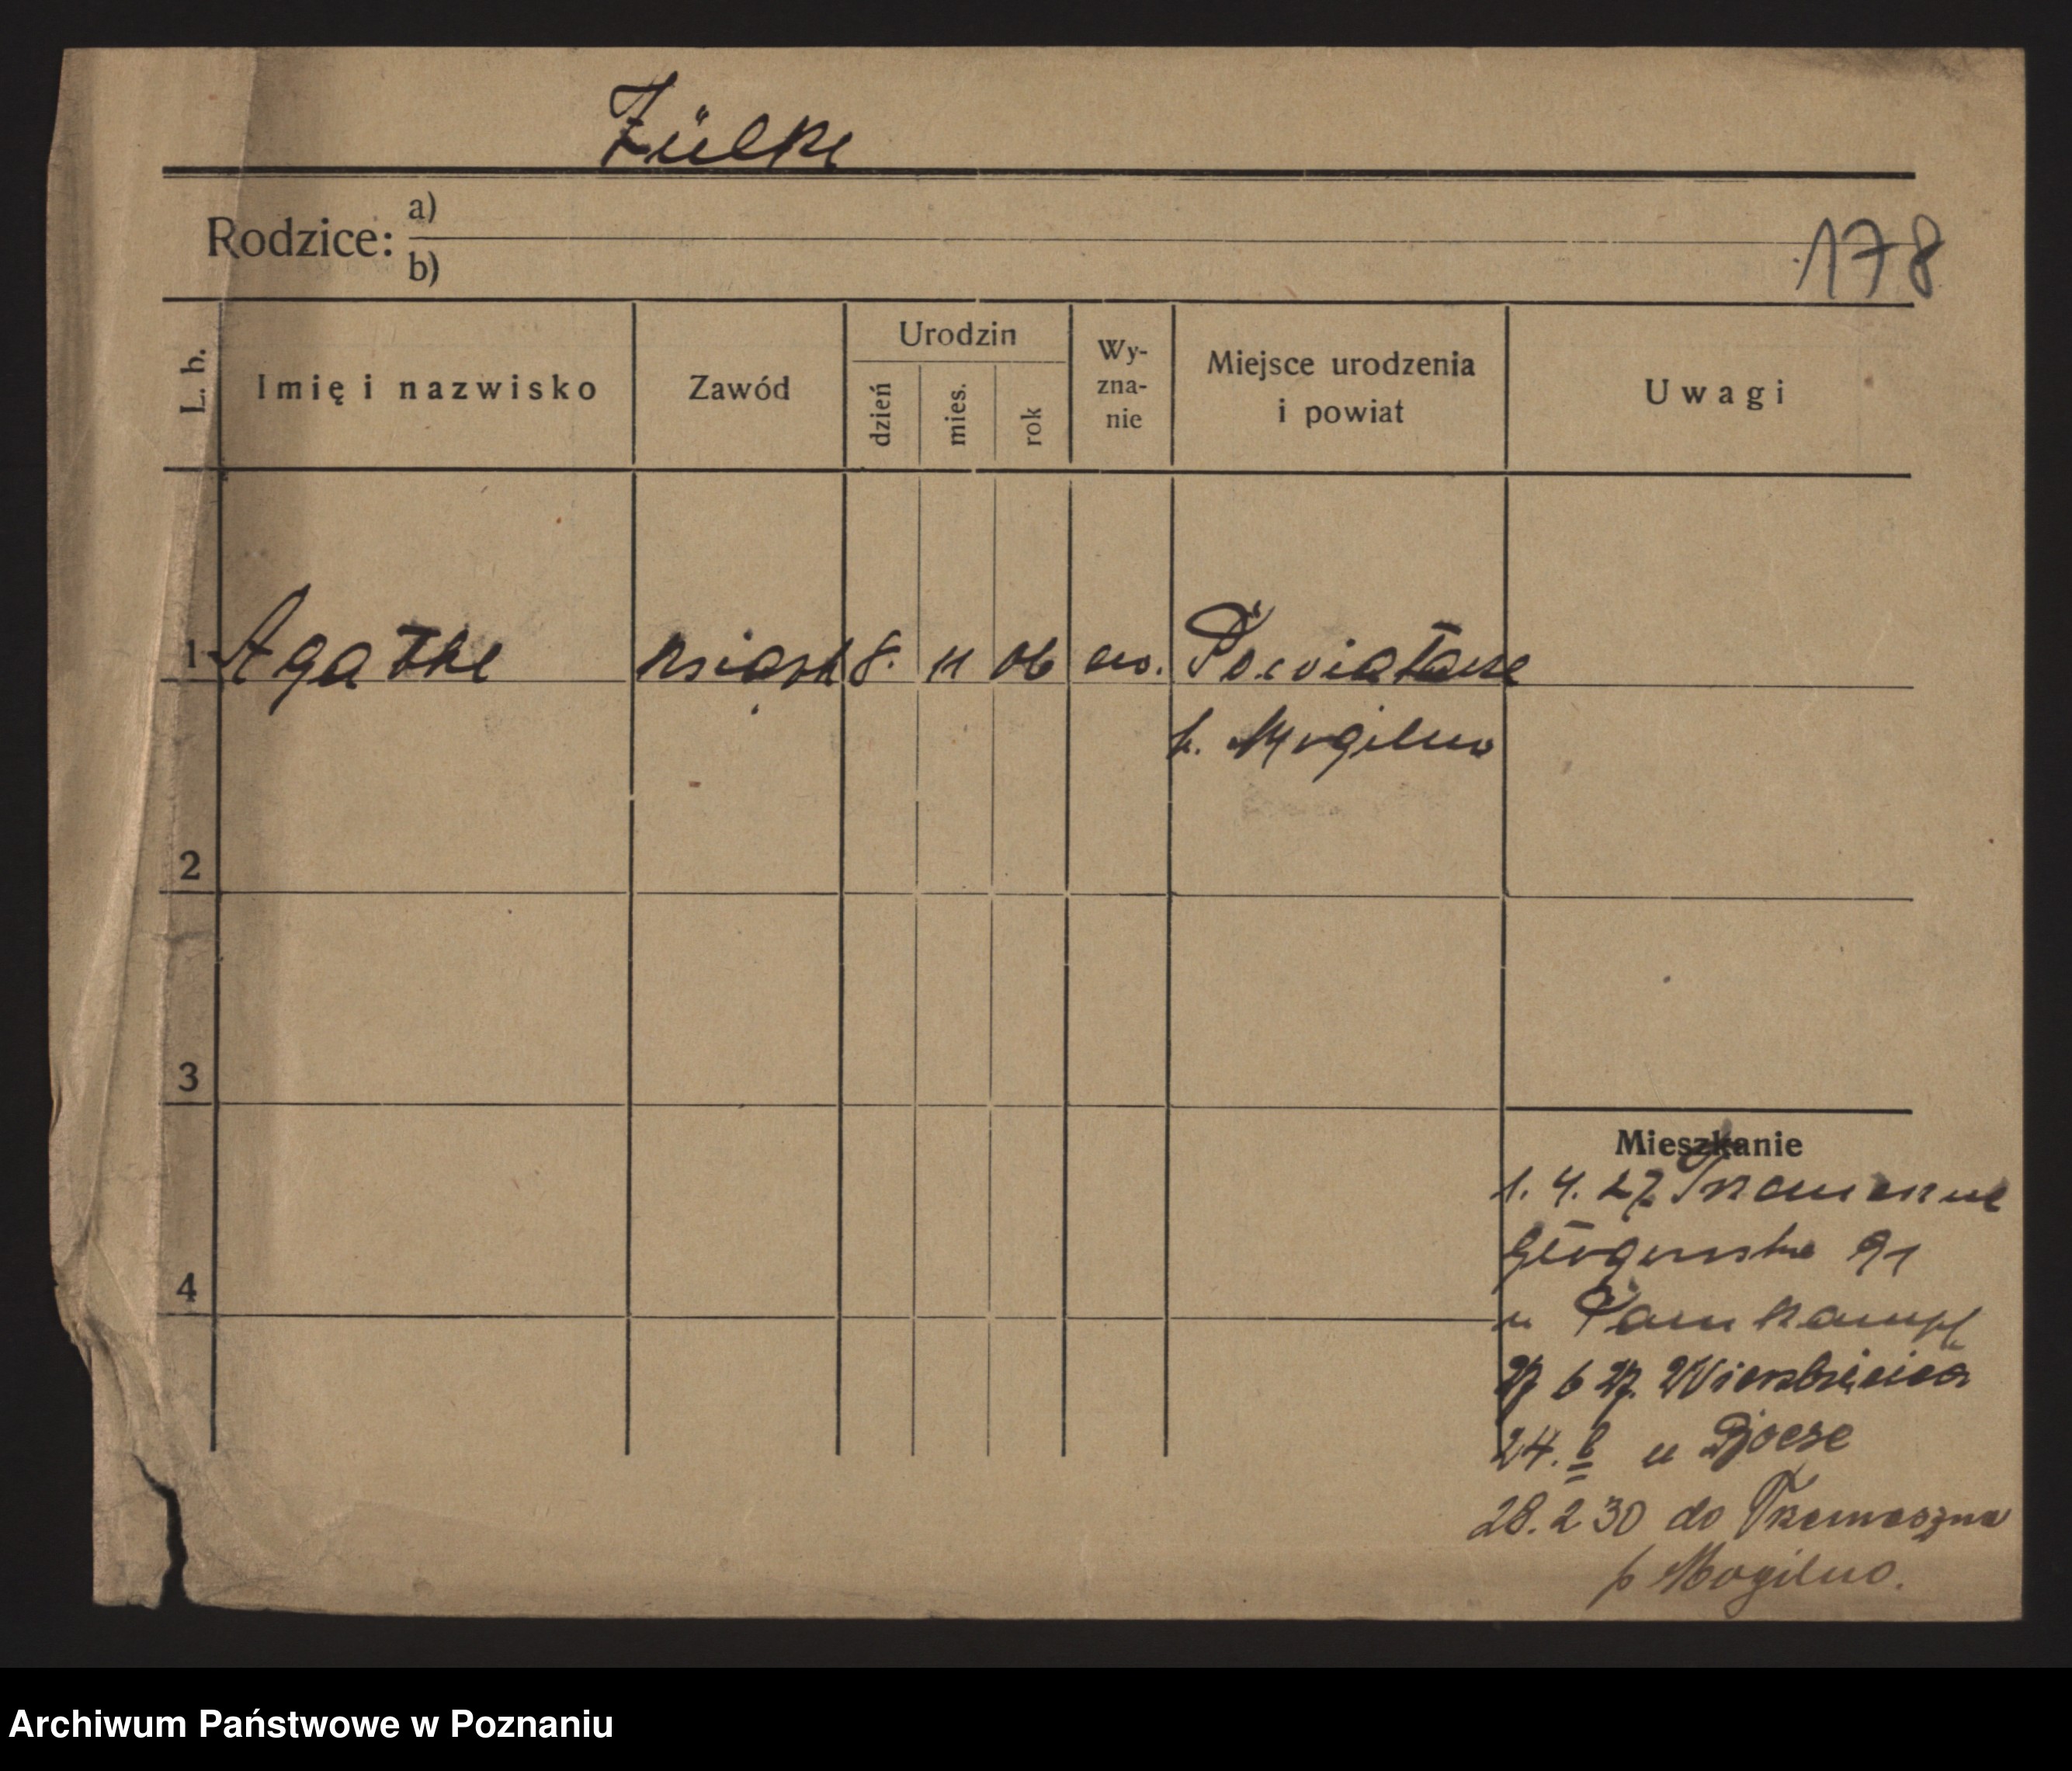 Zülke
Rodzice: a)
b)
178
L. b.
Imię i nazwisko
Zawód
Urodzin
dzień
mies.
rok
Wy-
zna-
nie
Miejsce urodzenia
i powiat
Uwagi
1 Agathe 8. 11 06 ew. Powiatkene
p. Mogilno
2
3
4
Mieszkanie
1. 4. 27
Głogowska 91
u
27 6 27. Wierzbięcice
24. u
28. 2 30 do Trzemeszna
p Mogilno.
Archiwum Państwowe w Poznaniu